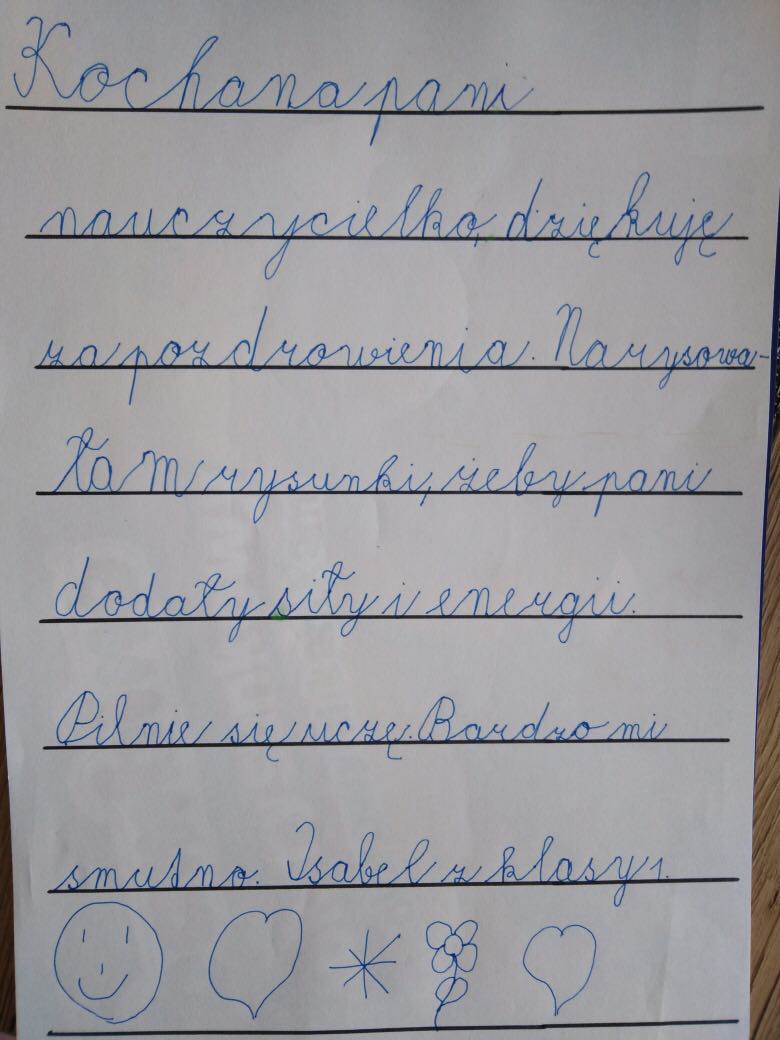 Kochana pani
nauczycielko, dziękuję
za pozdrowienia. Narysowa-
łam rysunki, żeby pani
dodały siły i energii.
Pilnie się uczę. Bardzo mi
smutno. Isabel z klasy 1.